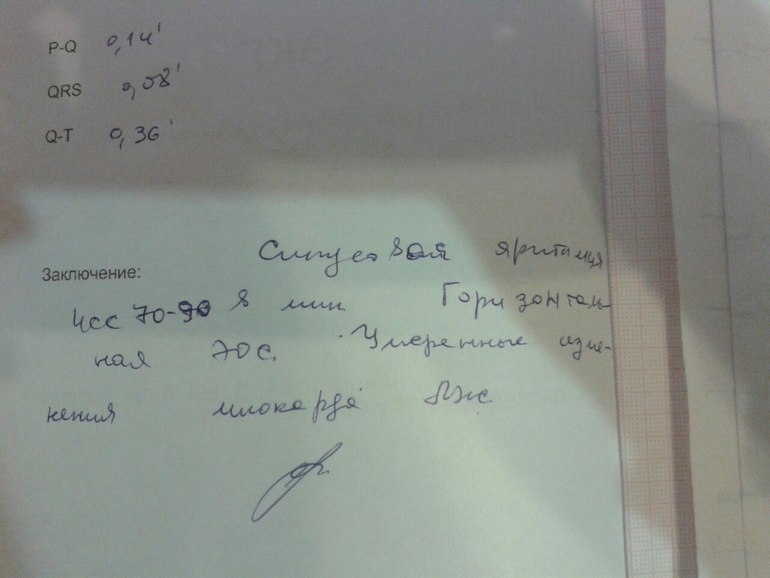 P-Q 0,14'
QRS 0,08'
Q-T 0,36'
Синусовая аритмия
Заключение:
ЧСС 70-90 в мин Горизонталь-
ная ЭОС. Умеренные изме-
нения миокарда ЛЖ